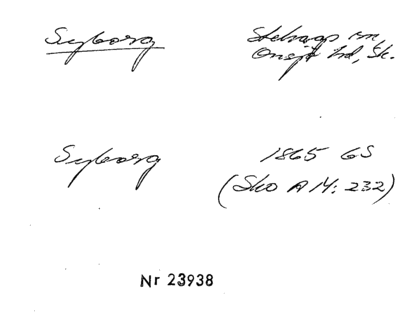 Syborg Stehags sn,
Onsjö hd, Sk.
Syborg 1865 GS
(Sko A M: 232)
Nr 23938